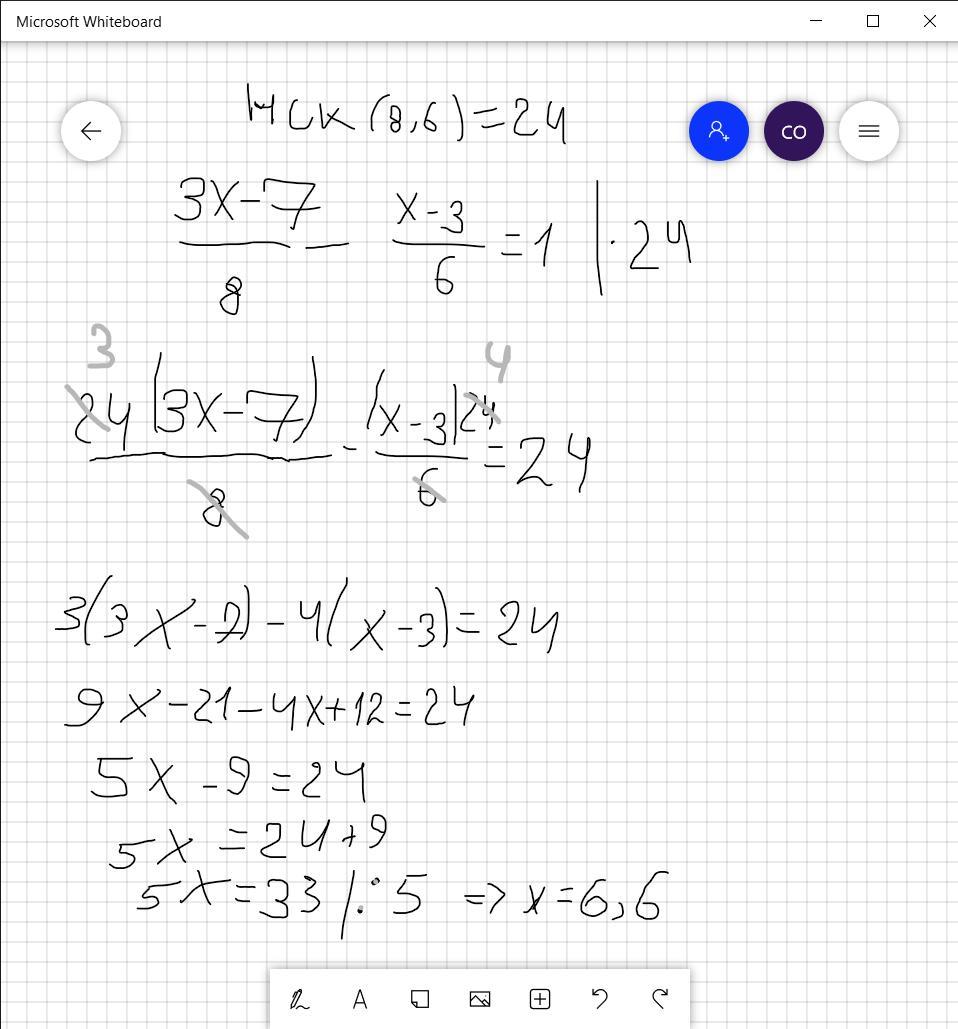 Microsoft Whiteboard
НСК (8,6) = 24
CO
(3x-7)/8 - (x-3)/6 = 1 | · 24
3 4
24(3x-7)/8 - (x-3)24/6 = 24
3(3x-7) - 4(x-3) = 24
9x-21-4x+12=24
5x-9=24
5x=24+9
5x=33 /:5 => x=6,6
A